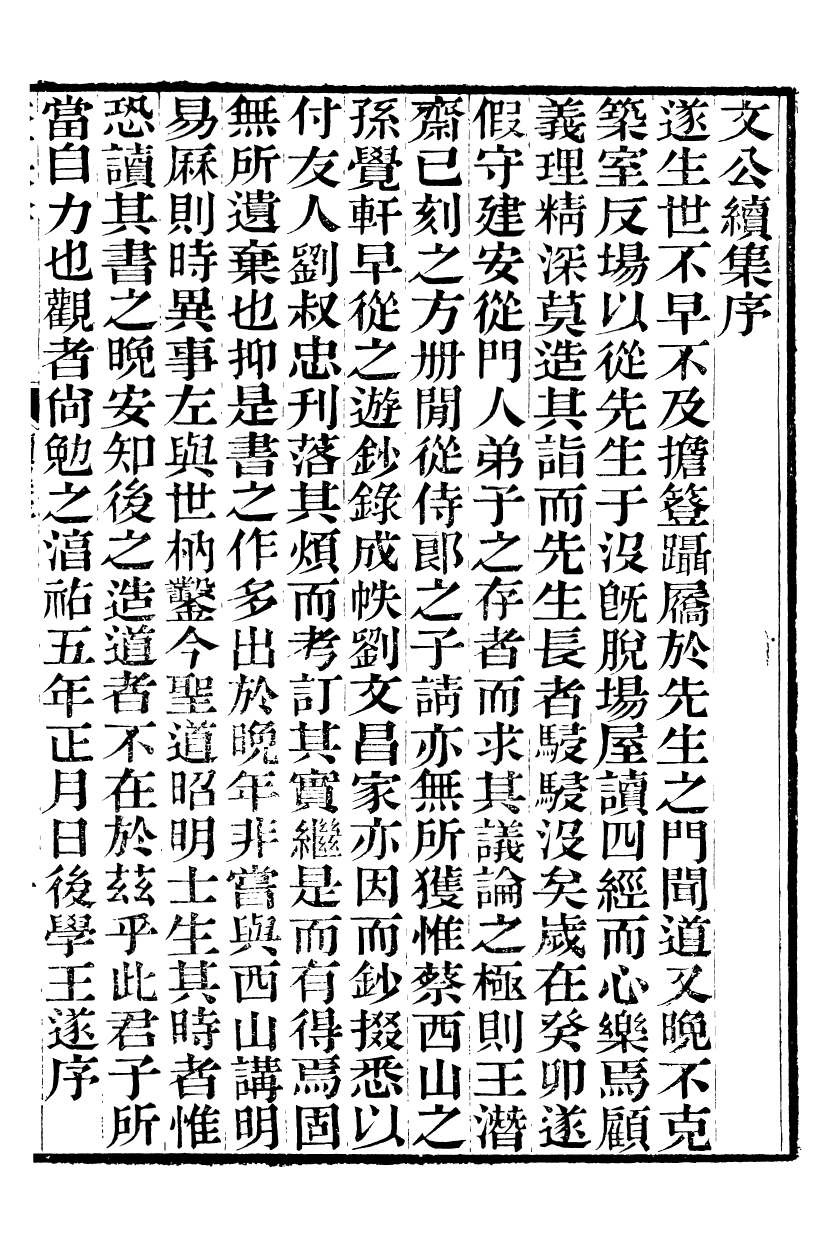 文公續集序
遂生世不早不及擔簦躡屩於先生之門聞道又晚不克
築室反場以從先生于沒旣脫場屋讀四經而心樂焉顧
義理精深莫造其詣而先生長者駸駸沒矣歲在癸卯遂
假守建安從門人弟子之存者而求其議論之極則王潛
齋已刻之方册閒從侍郞之子請亦無所獲惟蔡西山之
孫覺軒早從之遊鈔錄成帙劉文昌家亦因而鈔掇悉以
付友人劉叔忠刊落其煩而考訂其實繼是而有得焉固
無所遺棄也抑是書之作多出於晚年非嘗與西山講明
易厤則時異事左與世枘鑿今聖道昭明士生其時者惟
恐讀其書之晚安知後之造道者不在於茲乎此君子所
當自力也觀者尙勉之湻祐五年正月日後學王遂序